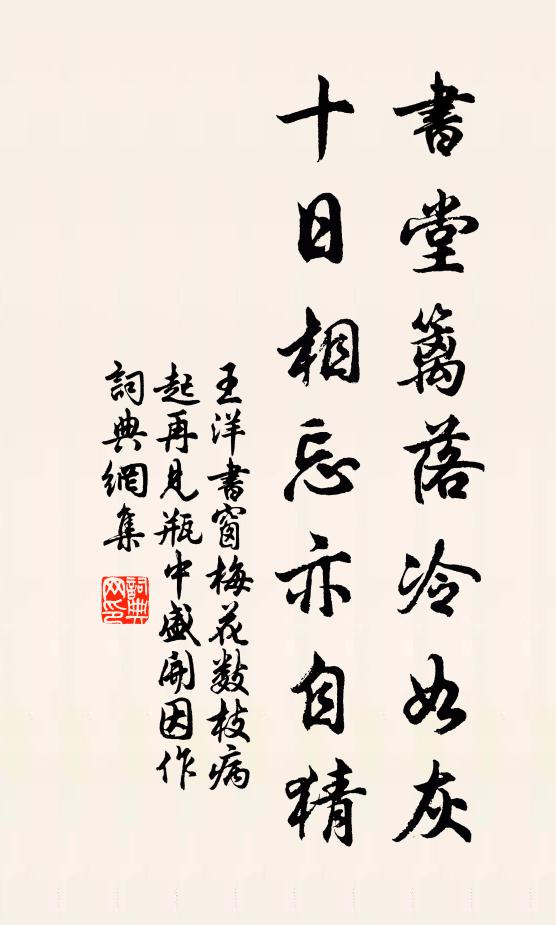 書堂籬落冷如灰
十日相忘亦自猜
王洋書窗梅花數枝病
起再見瓶中盛開因作
詞典網集
詞典網印